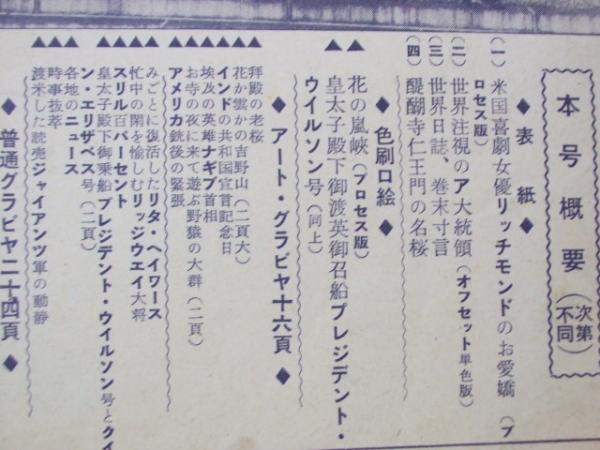 本号概要（次第不同）
◆表紙◆
（一）米国喜劇女優リッチモンドのお愛嬌（プ
ロセス版）
（二）世界注視のア大統領（オフセット単色版）
（三）世界日誌、巻末寸言
（四）醍醐寺仁王門の名桜
◆色刷口絵◆
▲花の嵐峡（プロセス版）
▲皇太子殿下御渡英御召船プレジデント・
ウイルソン号（同上）
◆アート・グラビヤ十六頁◆
▲拝殿の老桜
▲花か雲かの吉野山（二頁大）
▲インドの共和国宣言記念日
▲埃及の英雄ナギブ首相
▲お寺の夜に来て遊ぶ野猿の大群（二頁）
▲アメリカ銃後の緊張
▲みごとに復活したリタ・ヘイワース
▲忙中の閑を愉しむリッジウエイ大将
▲スリル百パーセント
▲皇太子殿下御乗船プレジデント・ウイルソン号とクイ
ン・エリザベス号（二頁）
▲各地のニュース
▲時事抜萃
▲渡米した読売ジャイアンツ軍の動静
◆普通グラビヤ二十四頁◆